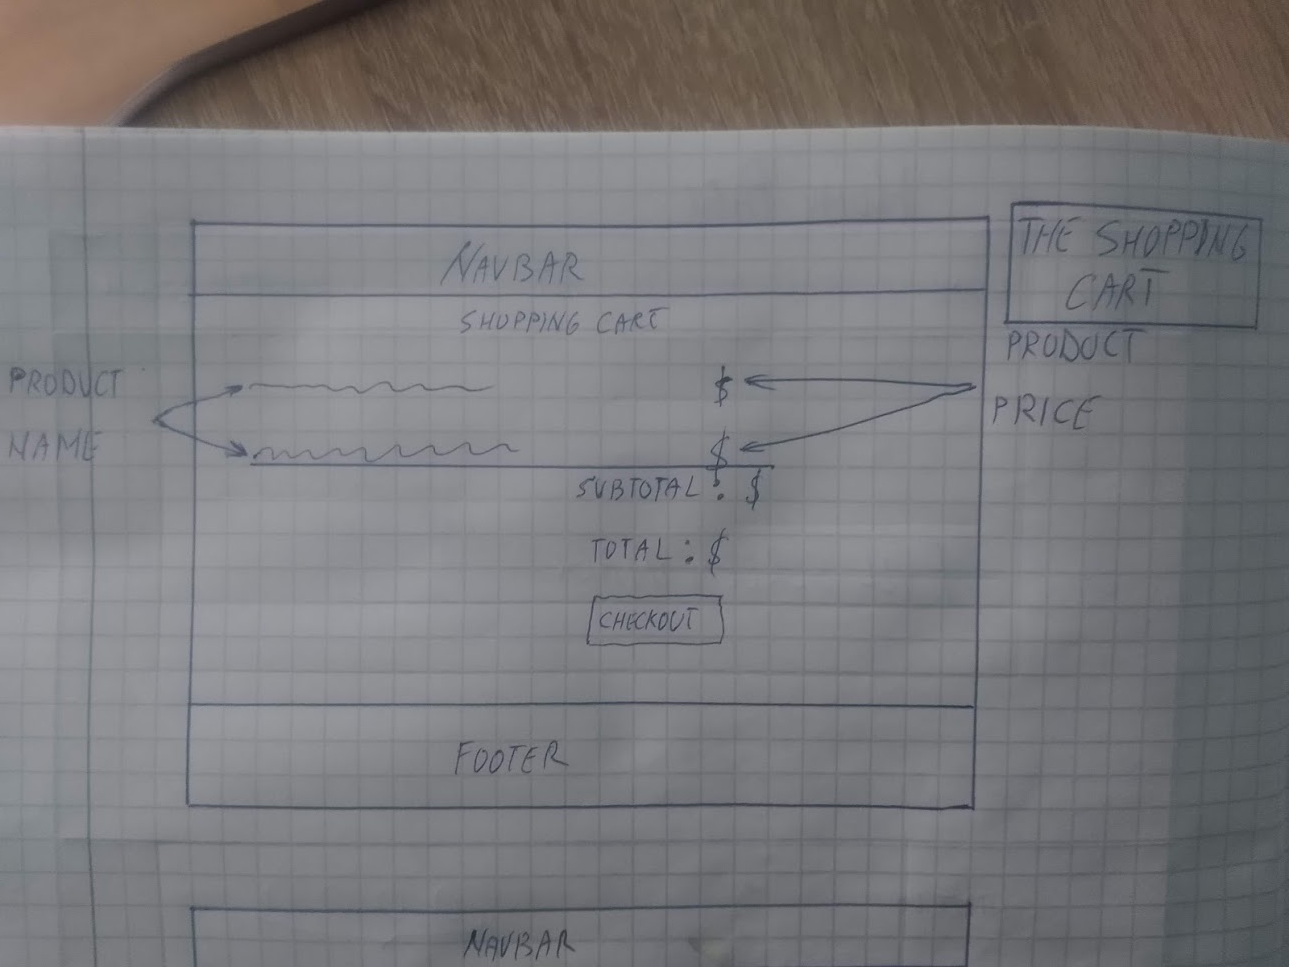 THE SHOPPING
CART
NAVBAR
SHOPPING CART
PRODUCT
NAME
$
$
PRODUCT
PRICE
SUBTOTAL: $
TOTAL: $
CHECKOUT
FOOTER
NAVBAR